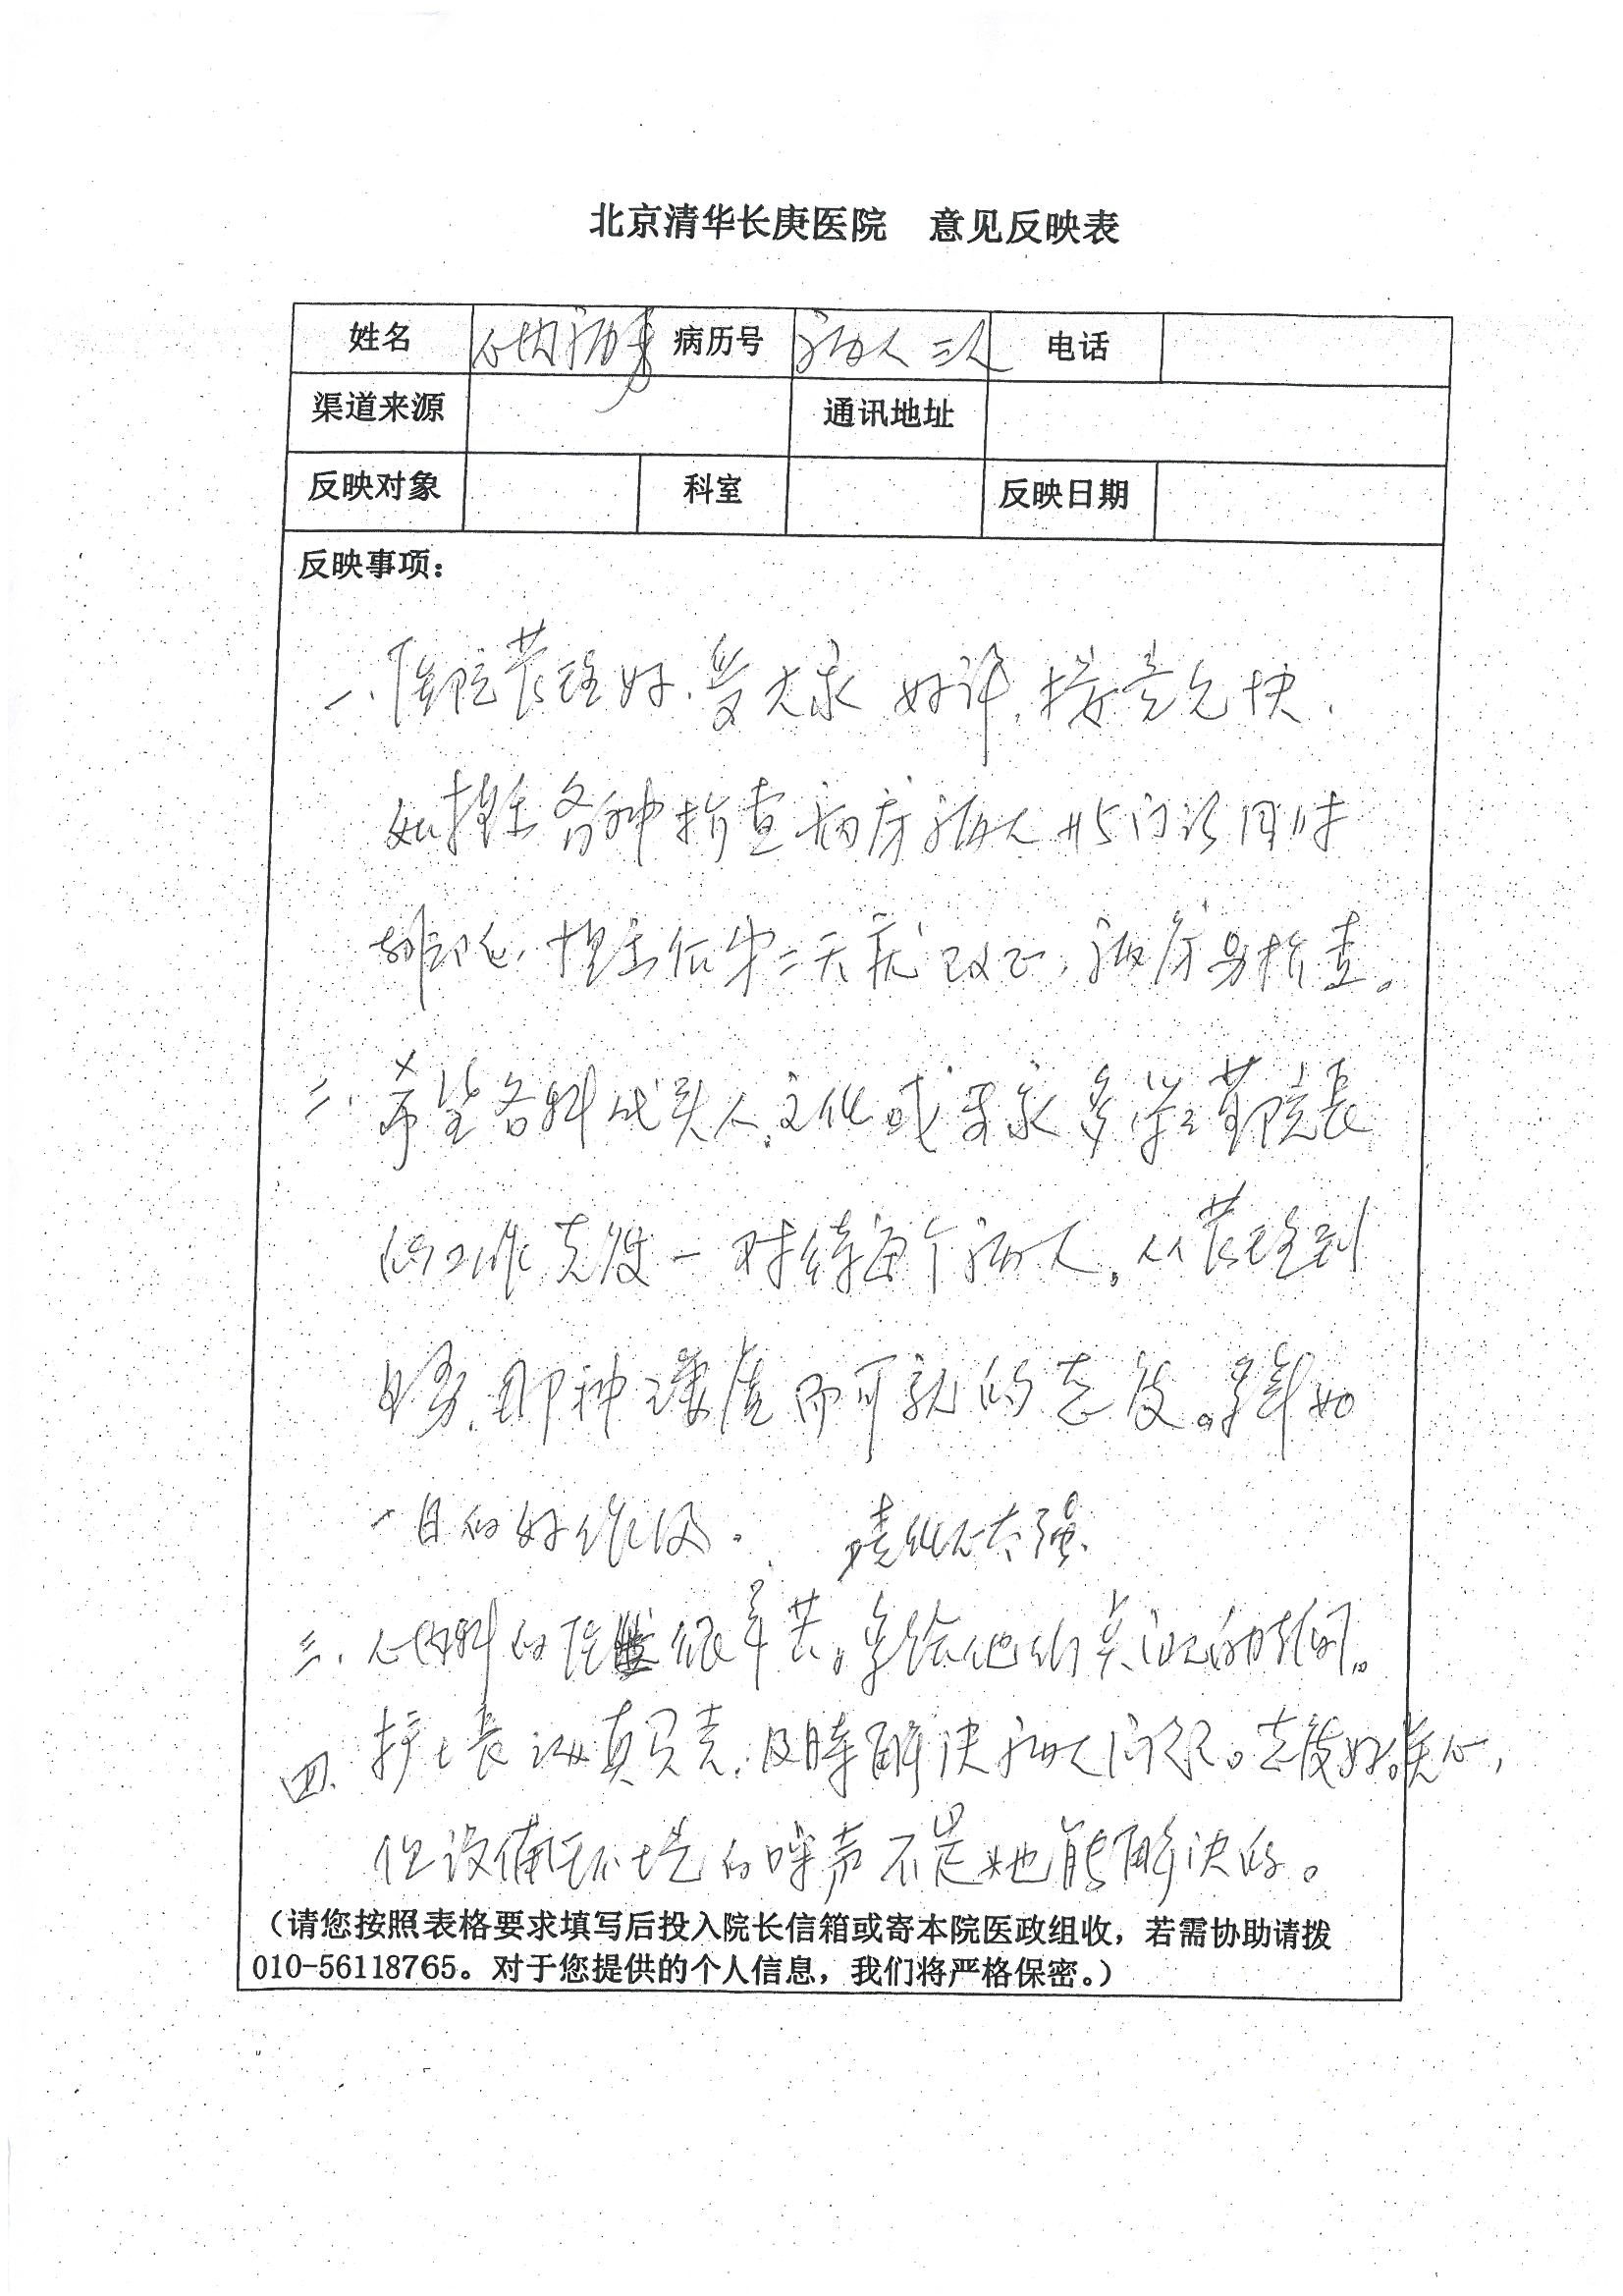 北京清华长庚医院 意见反映表
姓名 心内病房 病历号 病人三人 电话
渠道来源 通讯地址
反映对象 科室 反映日期
反映事项：
一、医院管理好、受大家好评，接意见快、
如提出各种检查病房病人与门诊同时
排队，提出后第二天就改正，病房另检查。
二、希望各科代头人，文化或专家多学董院长
的工作态度一对待每个病人，从管理到
服务，那种谦虚而可亲的态度。率如
一日的好作风。 责任心太强、
三、心内科的医生很辛苦。多给他们关心的时间。
四、护士长认真负责，及时解决病人问题。态度好关心，
但设备环境的呼声不是她能解决的。
（请您按照表格要求填写后投入院长信箱或寄本院医政组收，若需协助请拨
010-56118765。对于您提供的个人信息，我们将严格保密。）